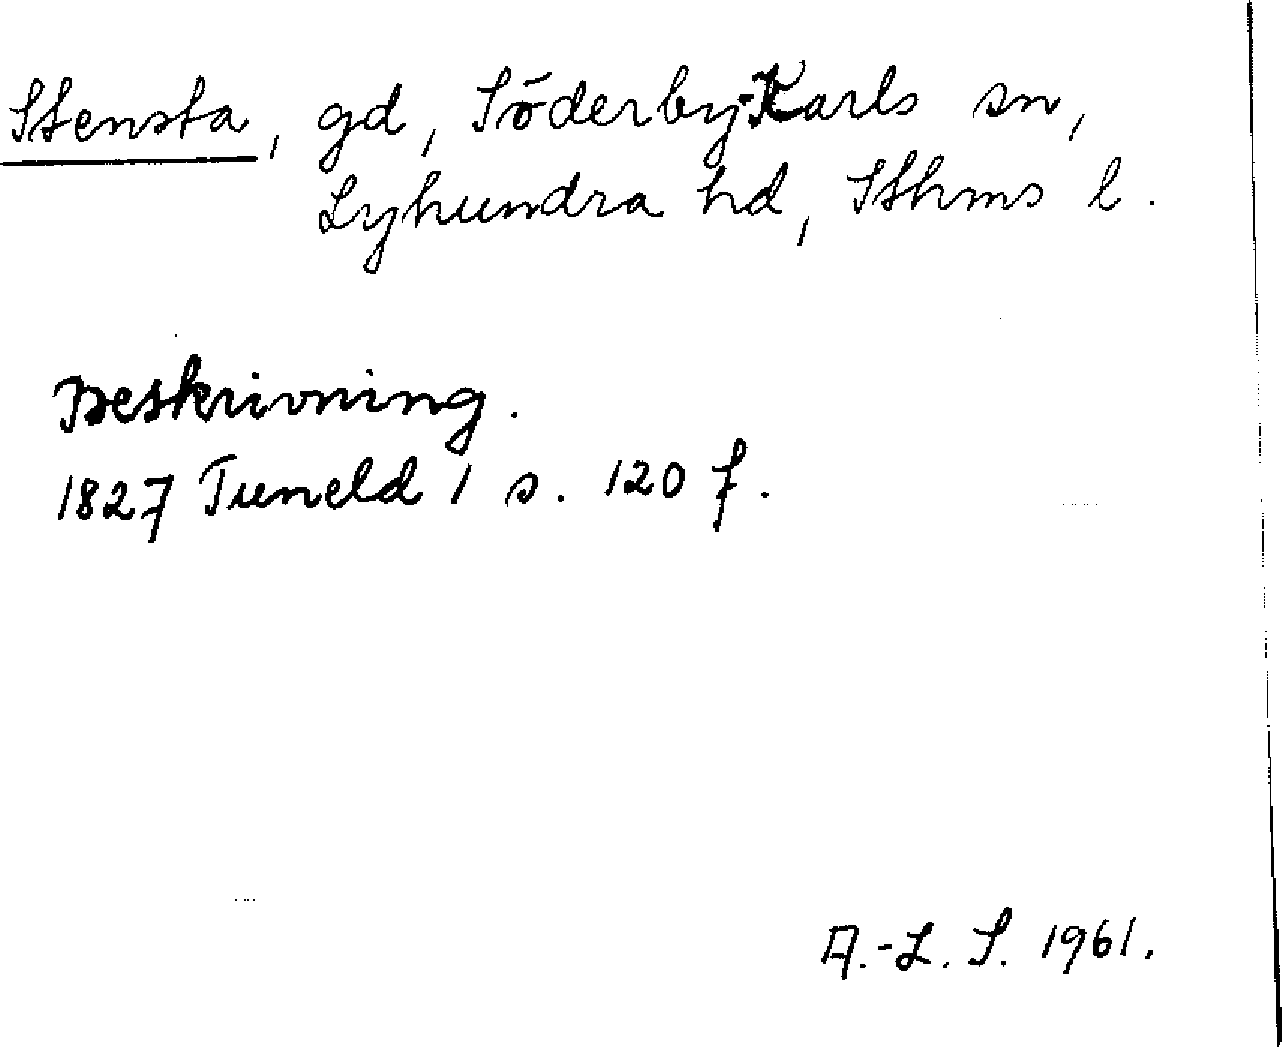 Stensta, gd, Söderby-Karls sn,
Lyhundra hd, Sthms l.
Beskrivning.
1827 Tuneld 1 s. 120 f.
A.-L. S. 1961.